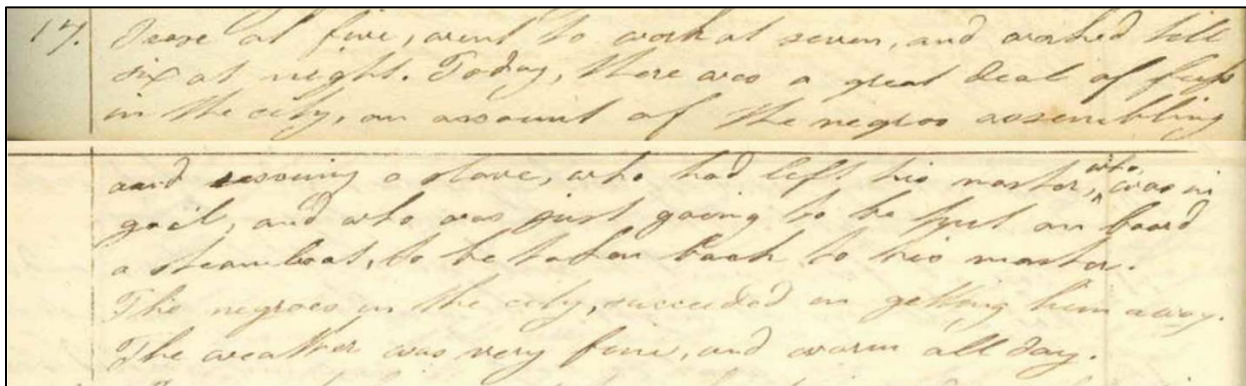 17. I rose at five, went to work at seven, and worked till
six at night. Today, there was a great deal of fuss
in the city, on account of the negros assembling
and rescuing a slave, who had left his master, who, was in
gaol, and who was just going to be put on board
a steam boat, to be taken back to his master.
The negroes in the city, succeeded in getting him away.
The weather was very fine, and warm all day.